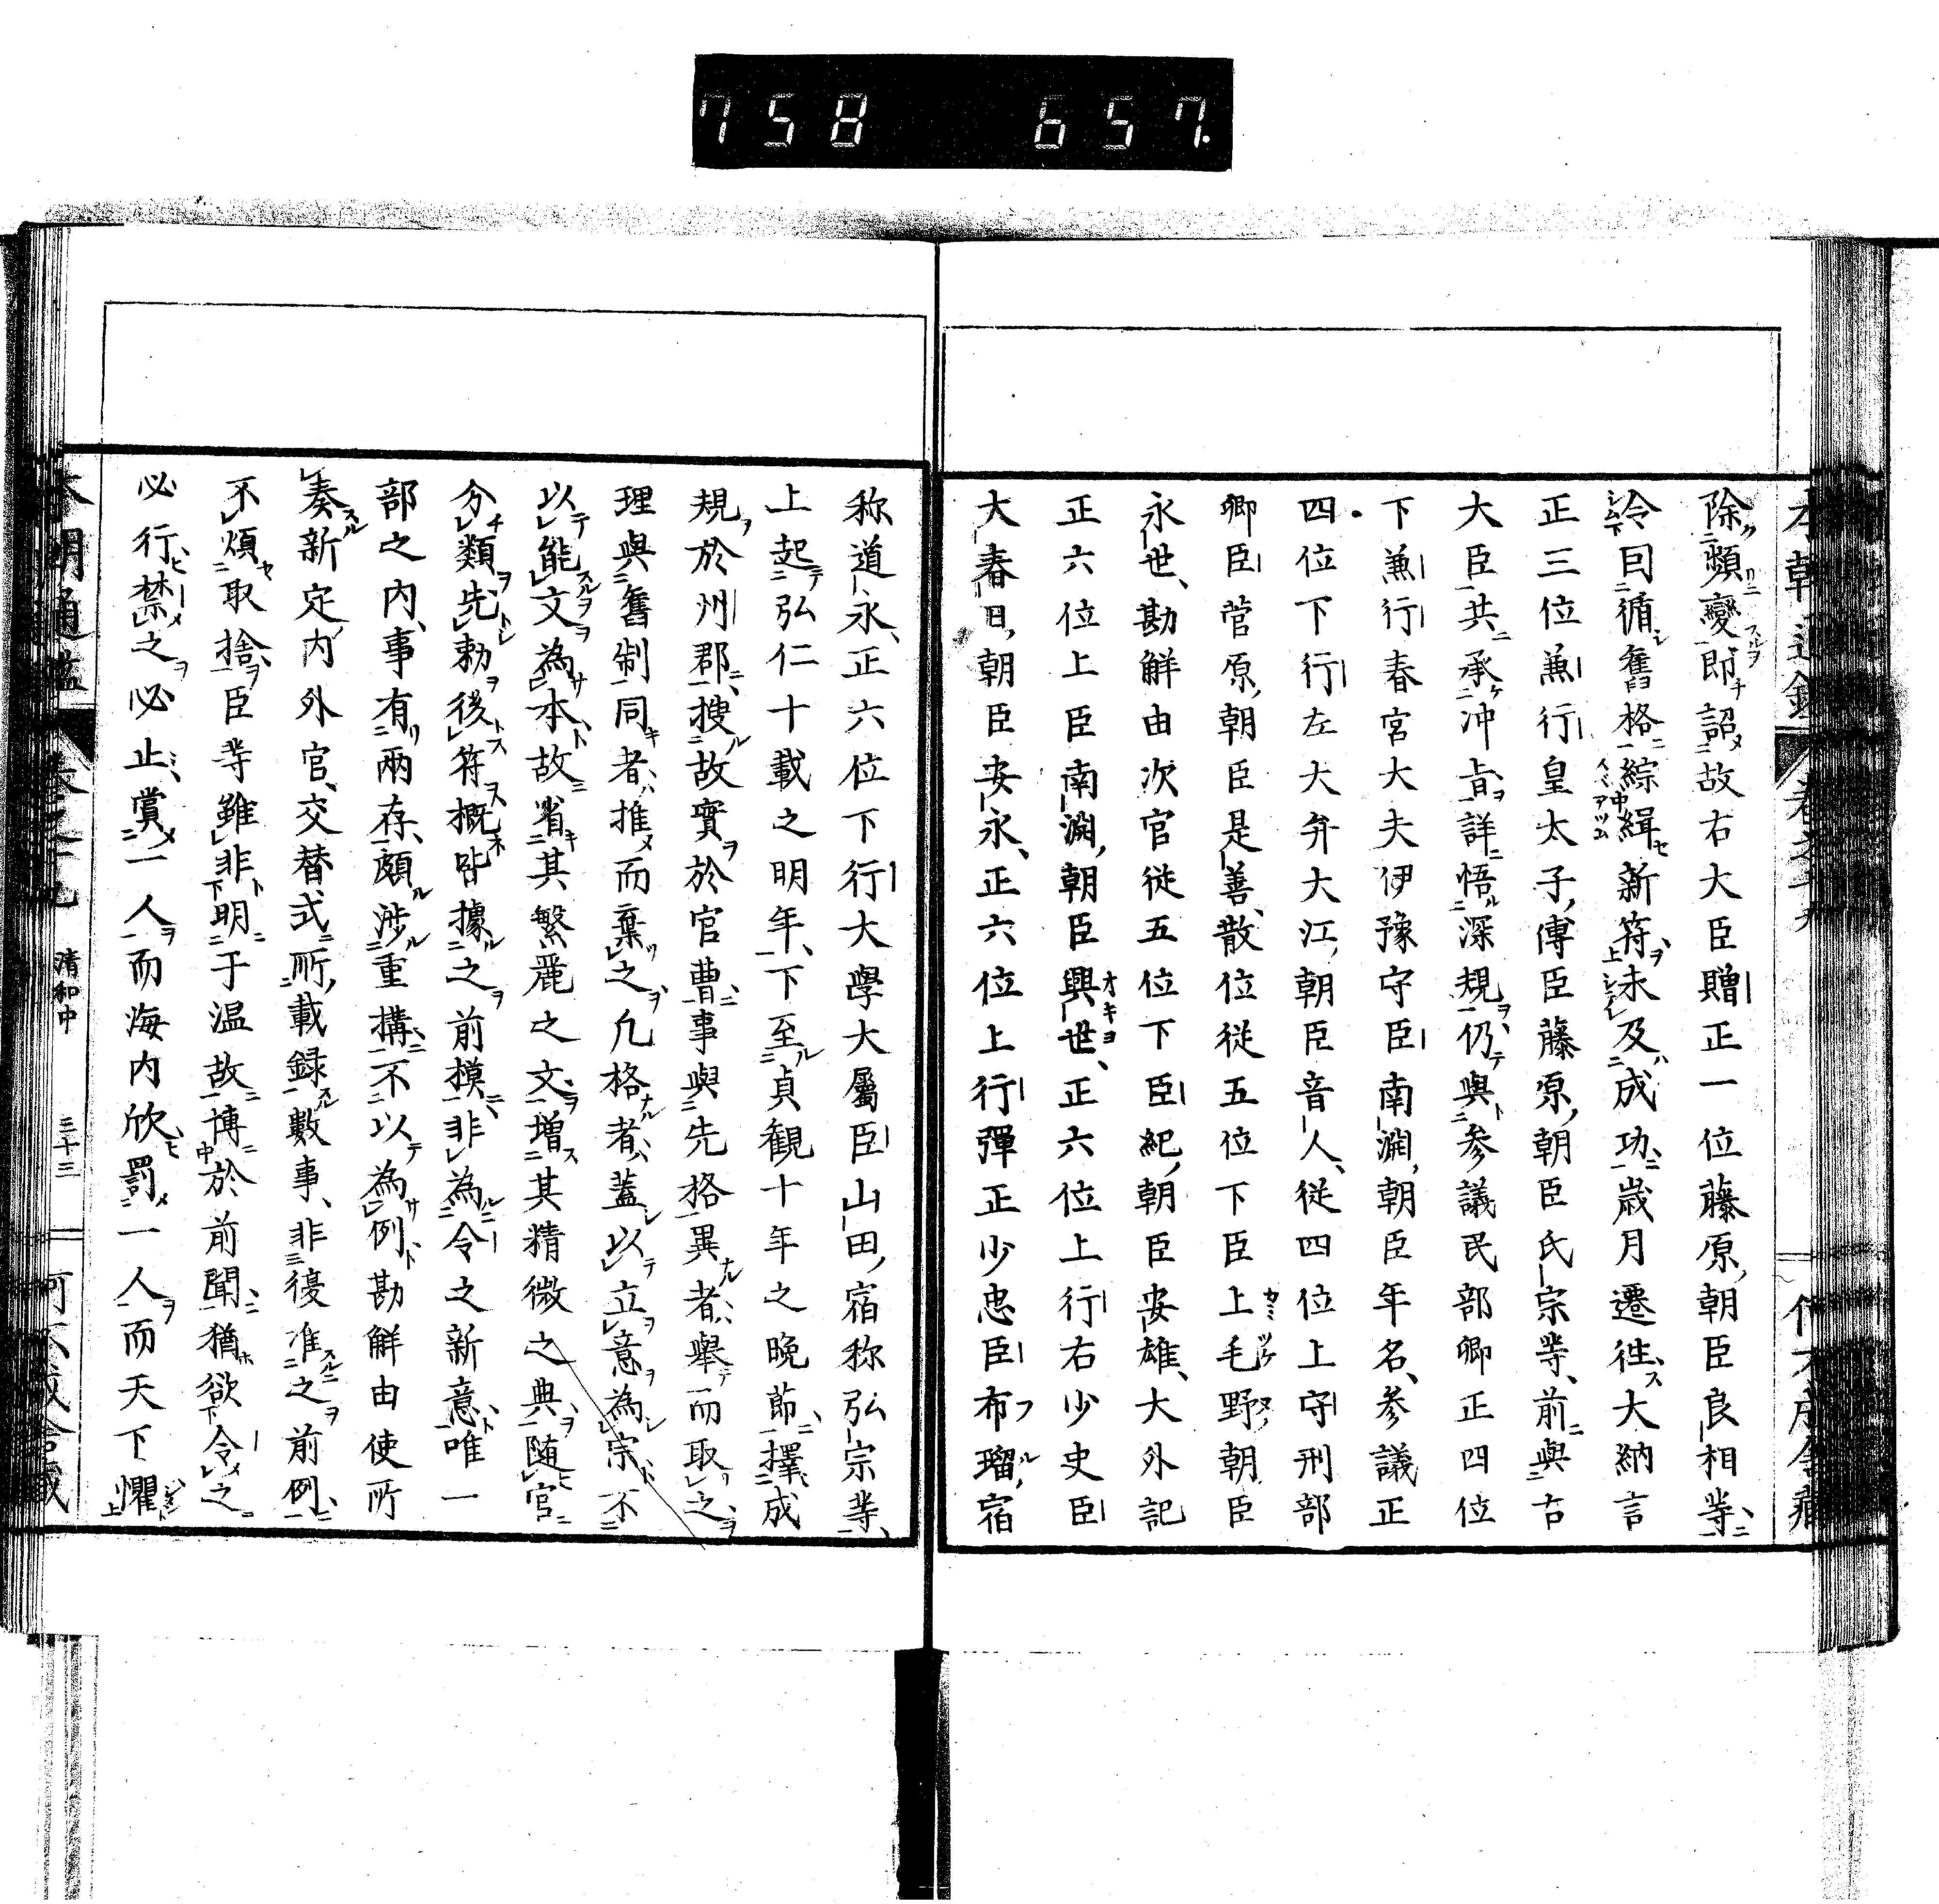 758 657.
除頻變即詔故右大臣贈正一位藤原朝臣良相等
令因循舊格綜緝新符未及成功歳月遷徃大納言
正三位兼行皇太子傅臣藤原朝臣氏宗等前與右
大臣共承冲旨詳悟深規仍與參議民部卿正四位
下兼行春宮大夫伊豫守臣南淵朝臣年名參議正
四位下行左大弁大江朝臣音人從四位上守刑部
卿臣菅原朝臣是善散位從五位下臣上毛野朝臣
永世勘解由次官從五位下臣紀朝臣安雄大外記
正六位上臣南淵朝臣興世正六位上行右少史臣
大春日朝臣安永正六位上行彈正少忠臣布瑠宿
称道永正六位下行大學大屬臣山田宿称弘宗等
上起弘仁十載之明年下至貞観十年之晩節擇成
規於州郡搜故實於官曹事與先格異者舉而取之
理與舊制同者推而棄之凡格者蓋以立意為宗不
以能文為本故省其繁麗之文増其精微之典随官
分類先勅後符概皆據之前模非為令之新意唯一
部之内事有兩存頗渉重構不以為例勘解由使所
奏新定内外官交替式所載録數事非復准之前例
不煩取捨臣等雖非明于温故博於前聞猶欲令之
必行禁之必止賞一人而海内欣罰一人而天下懼
本朝通鑑 卷之十九 清和中 三十三